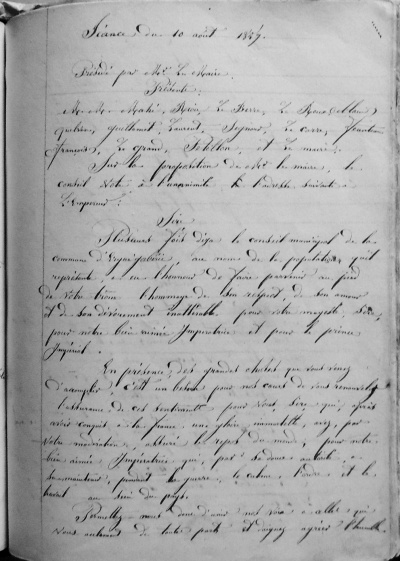 Séance du 10 août 1859.
Présidé par Mr Le Maire.
Présents:
M. M. Mahé, Le Pierre, Le Roux (Allain)
guillemet, Laurent, Seznec, Le corre,
(François), Le grand, et Le maire.
Sur la proposition de Mr le maire, le
conseil vote à l'unanimité l'adresse suivante à
l'Empereur:
Sire
Plusieurs fois déja le conseil municipal de la
commune d'Ergué-gabéric, au nom de la population qu'il
représente a eu l'honneur de faire parvenir au pied
de votre trone l'hommage de son respect, de son amour
et de son dévouement inaltérable pour votre majesté, Sire,
pour notre bien aimée Impératrice et pour le prince
Impérial.
En présence des grandes choses que vous venez
d'accomplir, c'est un besoin pour nos cœurs de vous renouveler
l'assurance de ces sentiments pour vous, Sire qui, après
avoir conquis à la france une gloire immortelle, avez, par
votre modération, assuré le repos du monde, pour notre
bien aimée Impératrice qui, par sa douce autorité, a
su maintenir, pendant la guerre, le calme, l'ordre et le
travail au sein du pays.
Permettez nous donc d'unir nos voix à celles qui
vous acclament de toute parts et daignez agréer l'humble